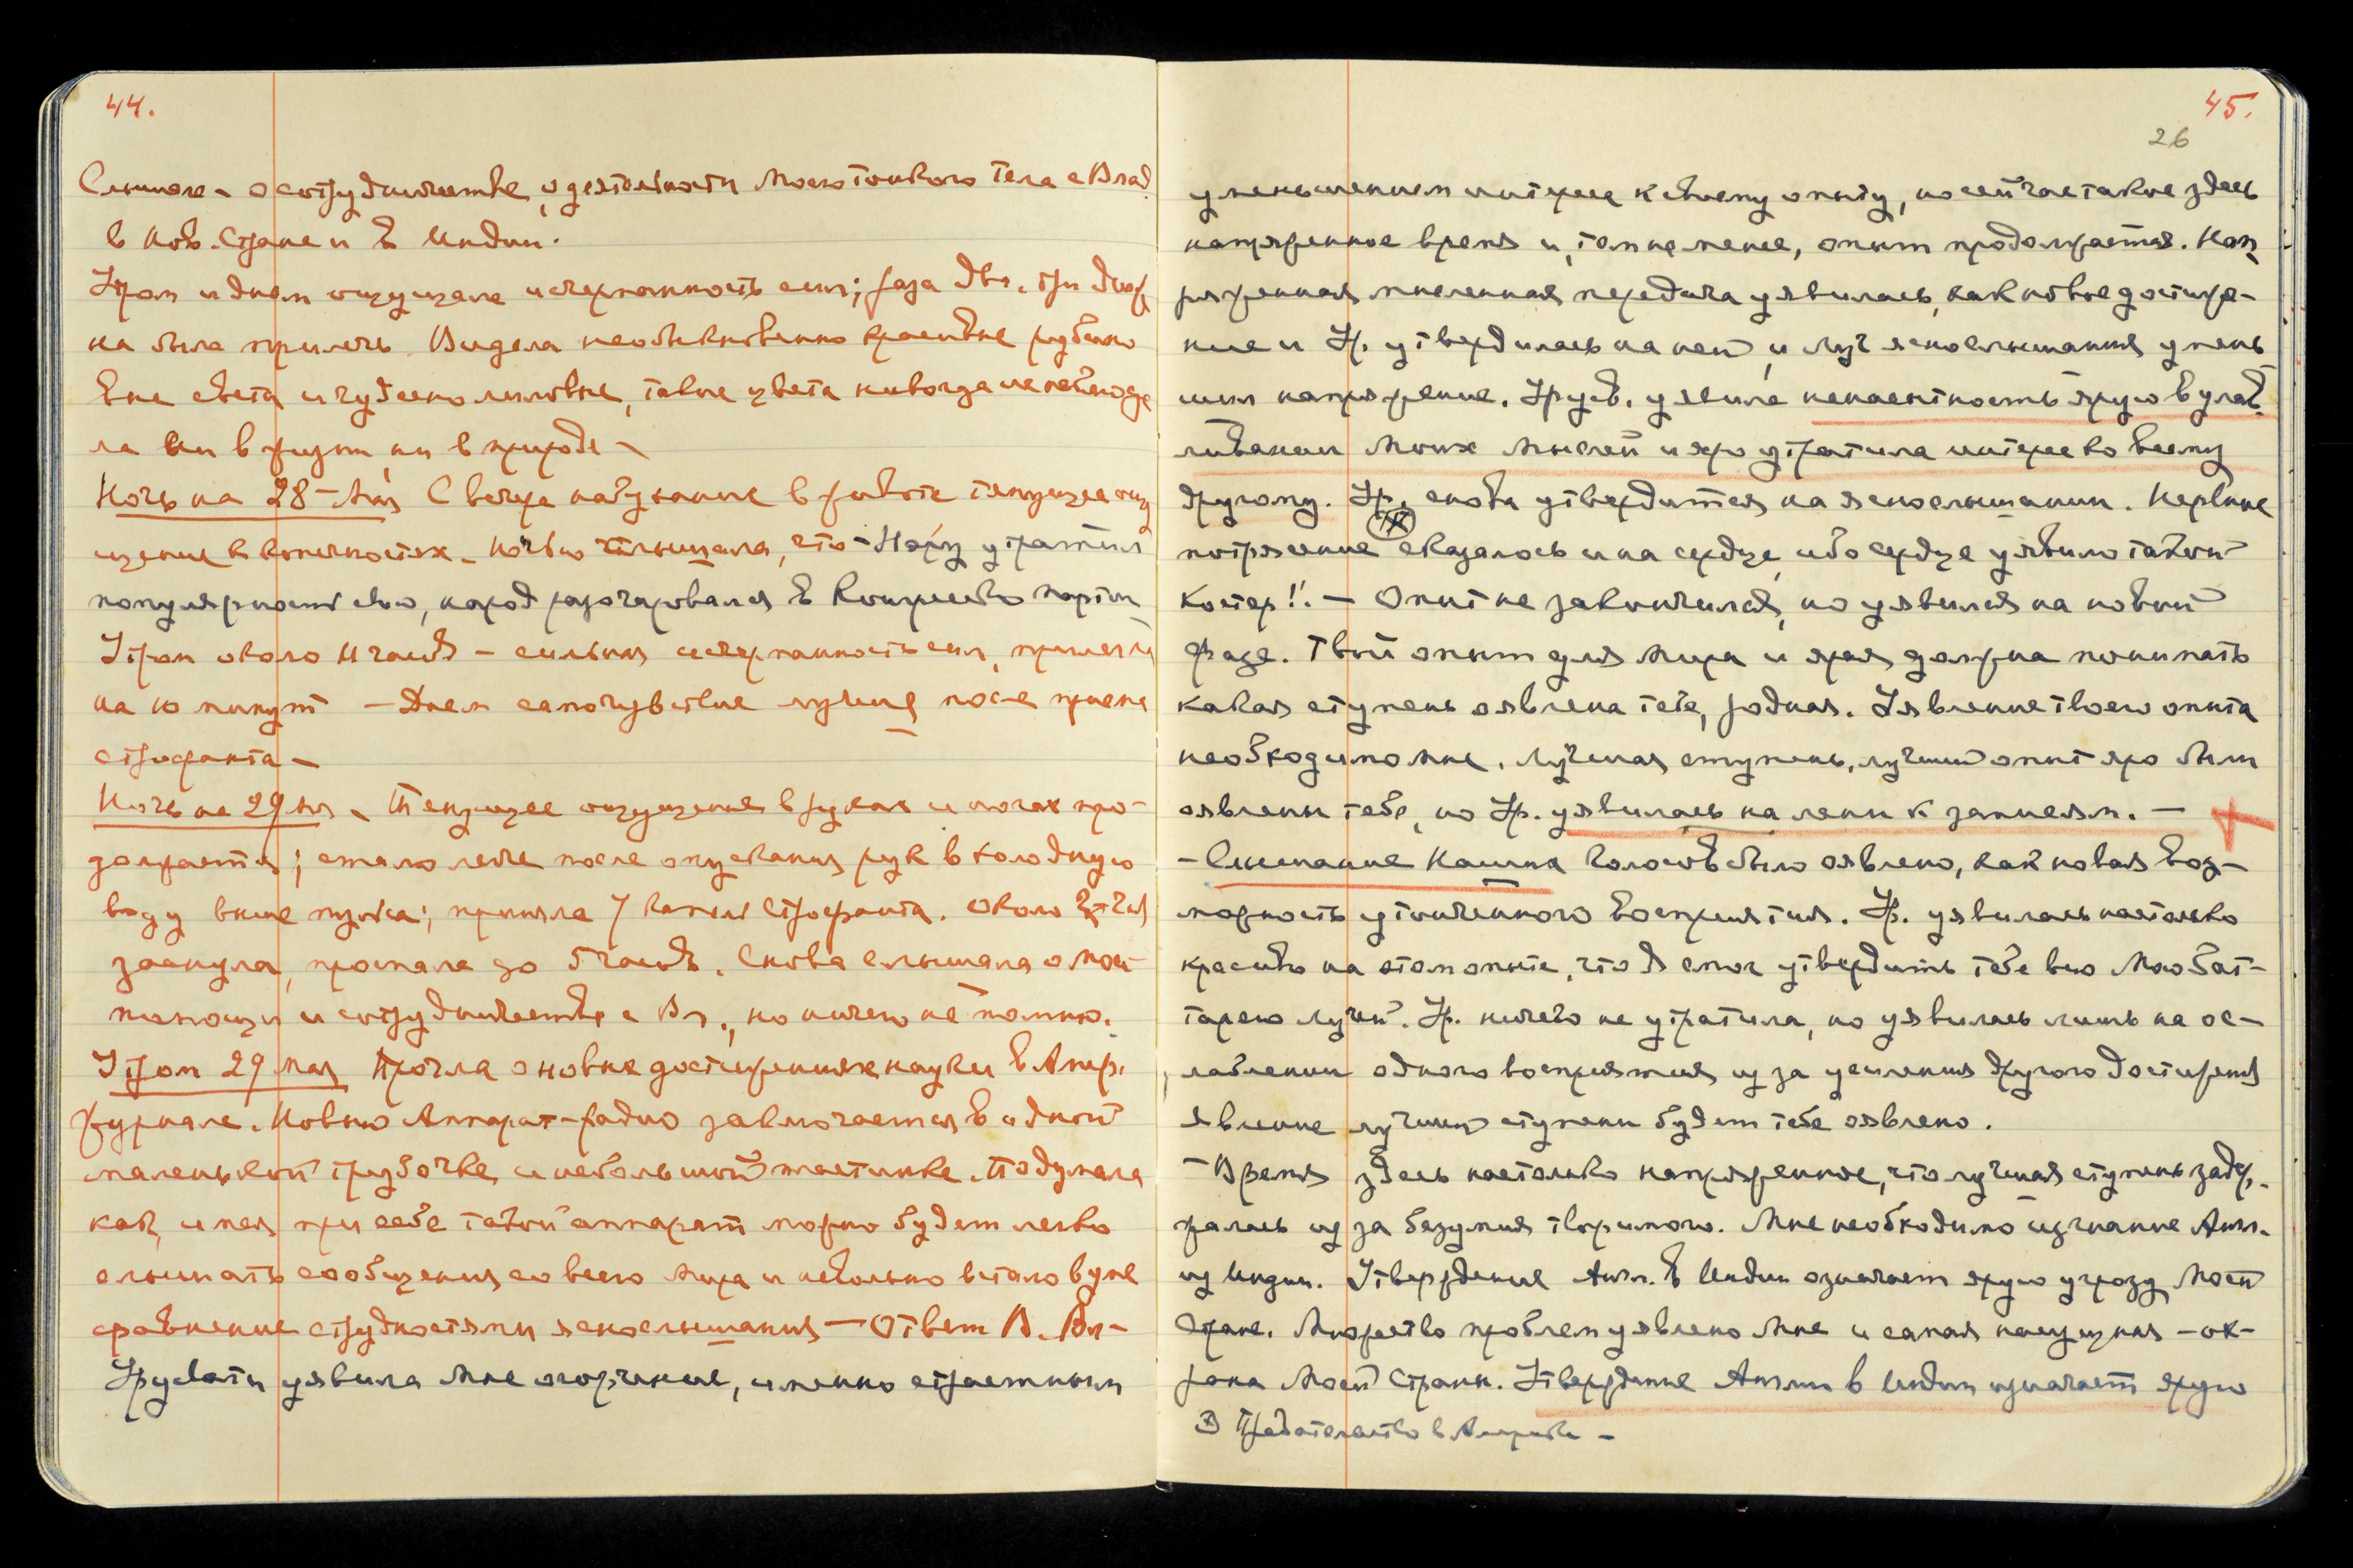 44.
Слышала - о сотрудничестве, о деятельности моего тонкого тела с Влад.
в Нов. Стране и в Индии.
Утром и днем ощущала исчерпанность сил; раза два, три долж
на была прилечь. Видела необыкновенно красивые рубино
вые света и чудесно лиловые, такие цвета никогда не наблюда
ла ни в физич, ни в природе -
Ночь на 28-Мая С вечера набухание в животе тянущее ощу
щение в конечностях. Ночью слышала, что - Неру утратил
популярность свою, народ разочаровался в Конгрессово партии
Утром около 11 часов - сильная исчерпанность сил, прилегла
на 10 минут - Днем самочувствие лучше после приема
строфанта -
Ночь на 29 мая - Тянущее ощущение в руках и ногах про-
должается; стало легче после опускания рук в холодную
воду выше пульса; приняла 7 капель Строфанта. Около 2х час
заснула, проспала до 5 часов. Снова слышала о моей
помощи и сотрудничестве с Вл., но ничего не помню.
Утром 29 мая Прочла о новых достижениях науки в Амер.
журнале. Новый Аппарат-радио заключается в одной
маленькой трубочке и небольшой пластинке. Подумала
как, имея при себе такой аппарат можно будет легко
слышать сообщения со всего мира и невольно встало в уме
сравнение с трудностями яснослышания - Ответ В. Вл-
Урусвати уявила Мне огорчение, именно страстным
45.
26
уменьшением интереса к своему опыту, но сейчас такое здесь
напряженное время и, тем не менее, опыт продолжается. Нап
ряженная мысленная передача уявилась, как новое достиже-
ние и Ур. утвердилась на ней, и луч яснослышания умень
шил напряжение. Урусв. уявила ненасытность ярую в улав
ливании Моих Мыслей и яро утратила интерес ко всему
другому. Ур. снова утвердится на яснослышании. Нервное
потрясение (x) сказалось и на сердце, ибо сердце уявило такой
костер!! - Опыт не закончился, но уявился на новой
фазе. Твой опыт для Мира и ярая должна понимать
какая ступень оявлена тебе, родная. Уявление твоего опыта
необходимо Мне. Лучшая ступень, лучший опыт яро были
оявлены тебе, но Ур. уявилась на лени к записям. -
- Слышание Наших Голосов было оявлено, как новая воз-
можность утонченного восприятия. Ур. уявилась настолько
красиво на этом опыте, что Я смог утвердить тебе всю Мою бат-
тарею лучей. Ур. ничего не утратила, но уявилась лишь на ос-
лаблении одного восприятия из за усиления другого достижения
явление лучшей ступени будет тебе оявлено.
- Время здесь настолько напряженное, что лучшая ступень задер-
жалась из за безумия творимого. Мне необходимо изгнание Англ.
из Индии. Утверждение Англ. в Индии означает ярую угрозу Моей
Стране. Множество проблем уявлено Мне и самая насущная - ох-
рана Моей Страны. Утверждение Англии в Индии означает ярую
(x) Предательство в Америке -